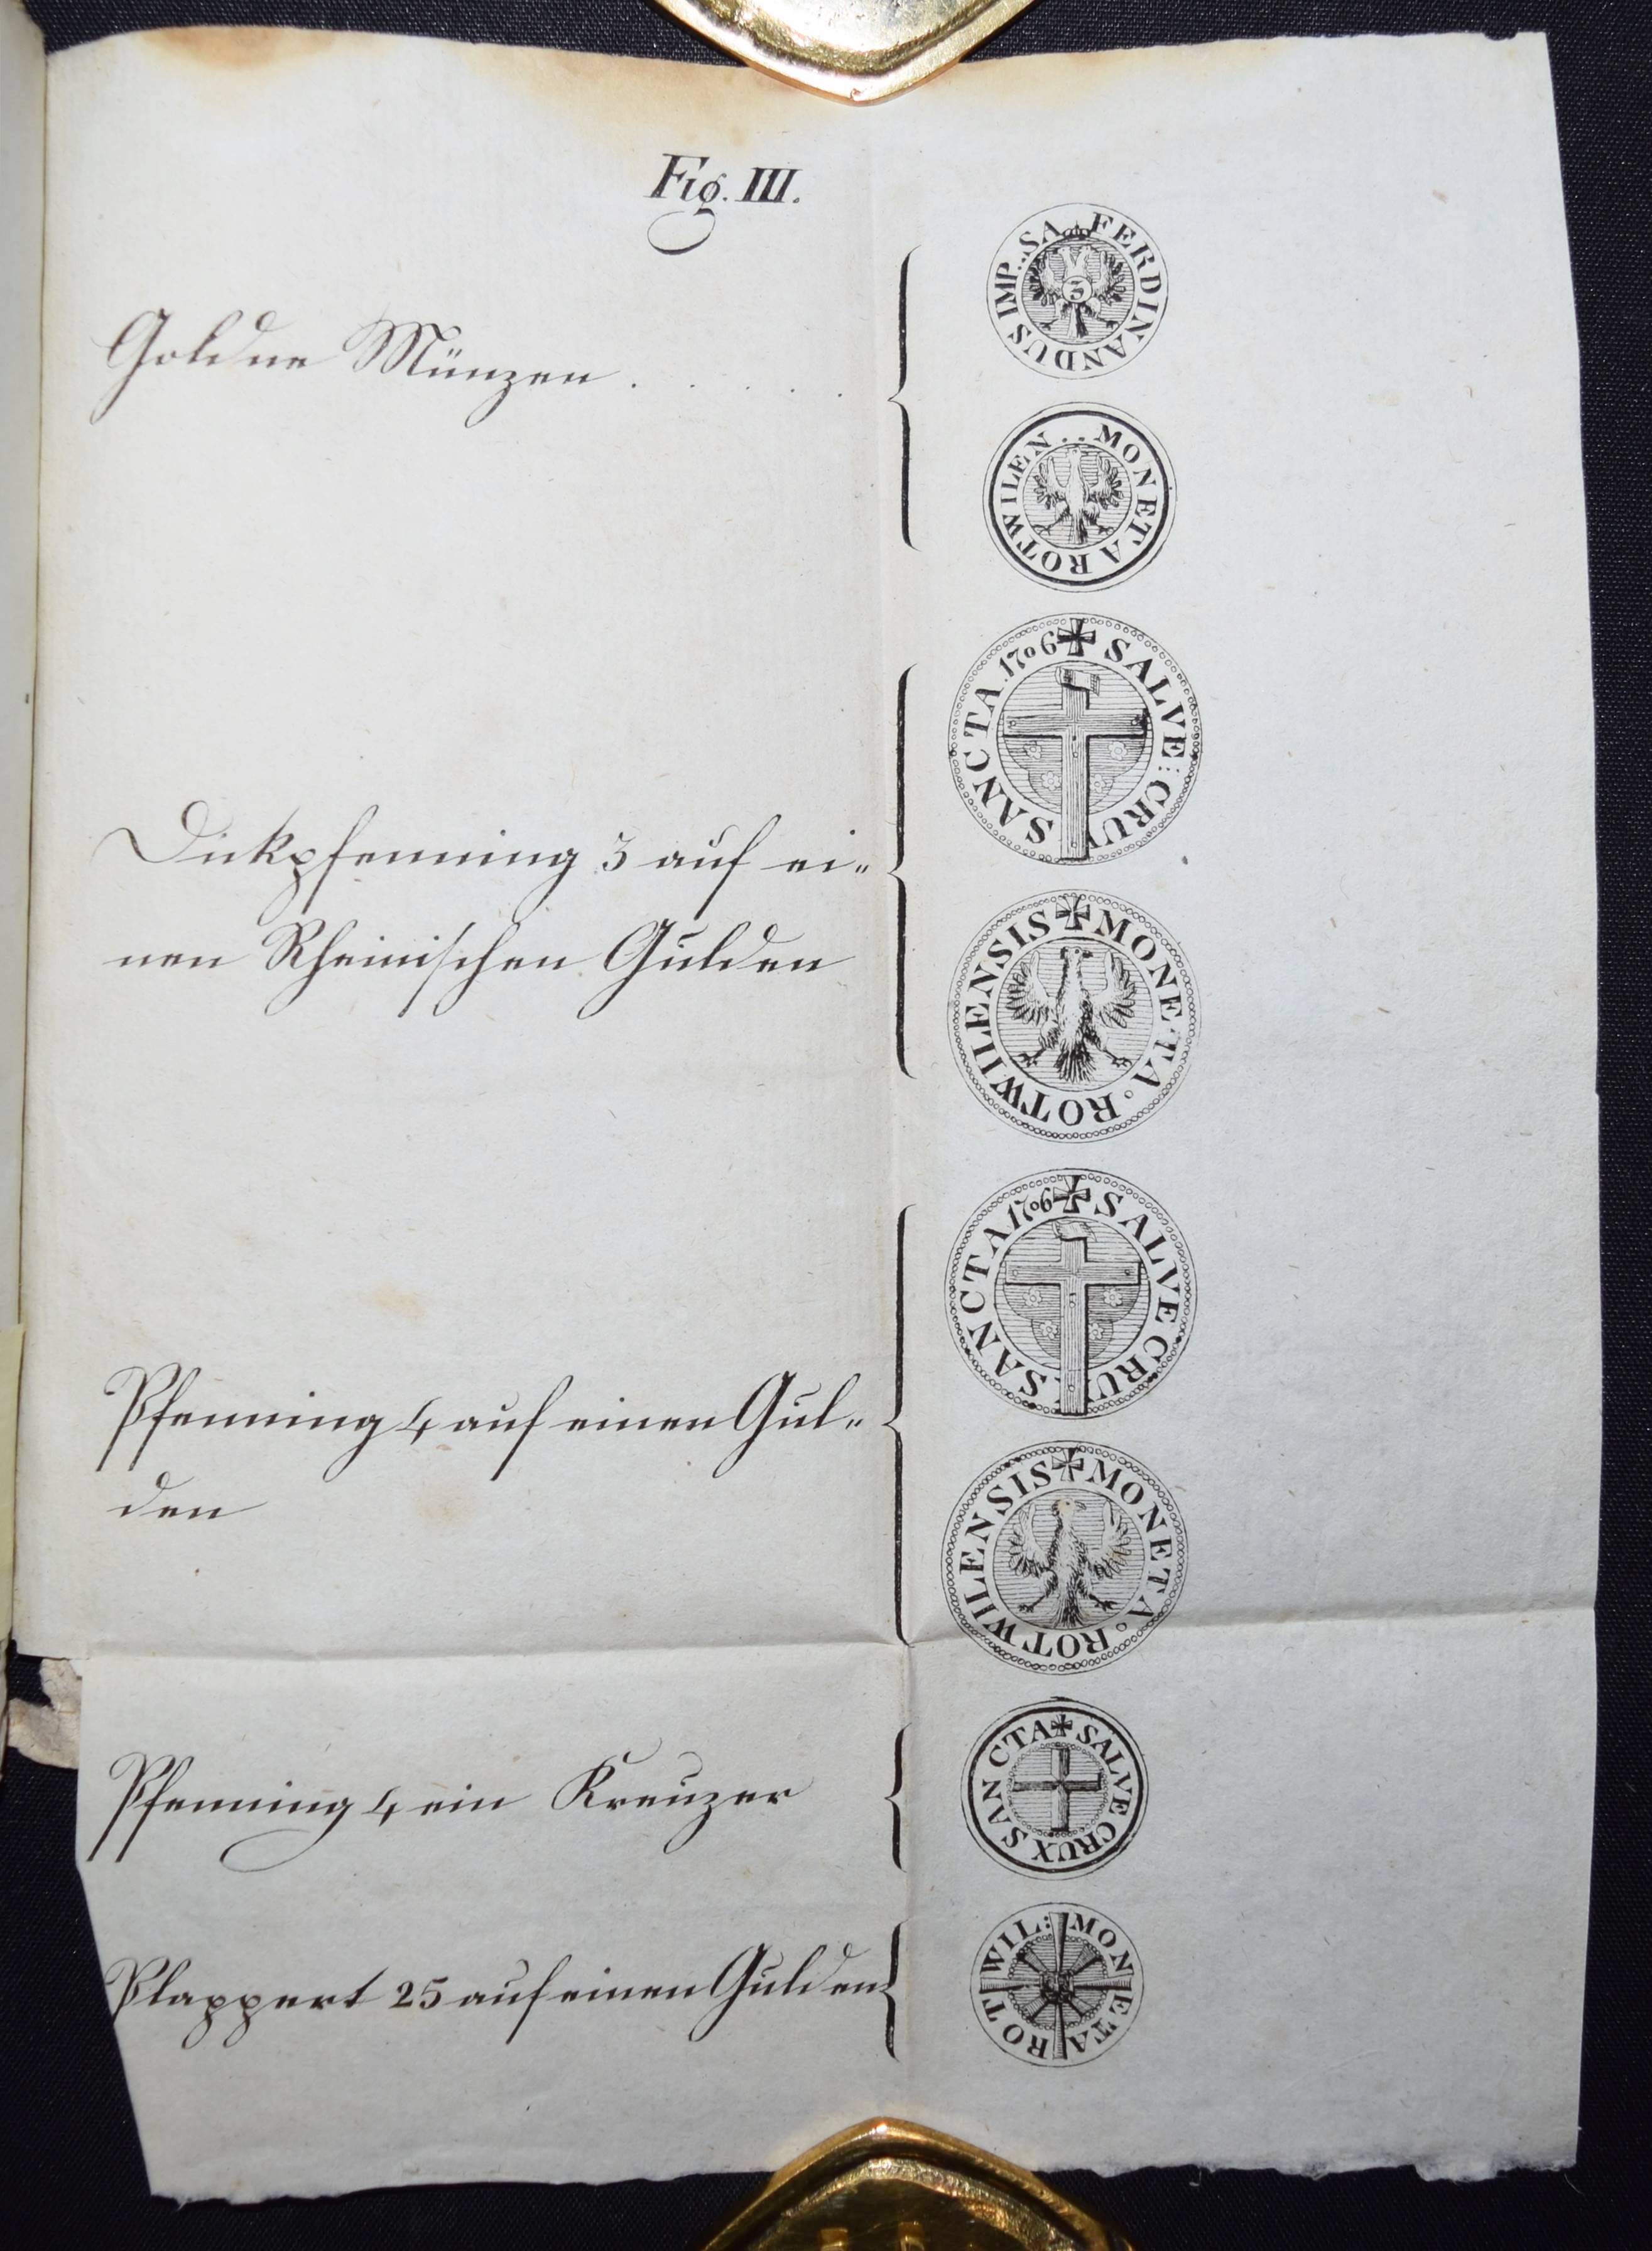 Fig. III.
FERDINANDUS IMP. SA.
3
Goldne Münzen . . . . .
MONETA ROTWILEN
SALVE : CRUX SANCTA . 1706
Dickpfenning 3 auf ei„
nen Rheinischen Gulden
MONE·TA · ROTWILENSIS
SALVE CRUX SANCTA 1706
Pfenning 4 auf einen Gul„
den
MONETA · ROTWILENSIS
SALVE CRUX SANCTA
Pfenning 4 ein Kreuzer
MONETA ROTWIL:
Plappert 25 auf einen Gulden